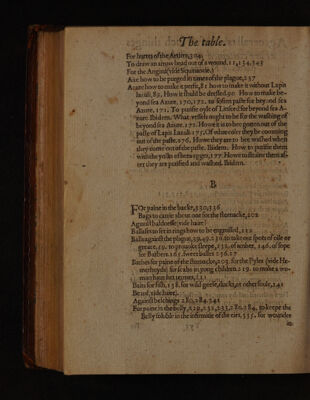 The table.
For hurtes of the Armes, 304.
To draw an arrow head out of a wound. 11, 154, 345
For the Angina (vide Squinancie.)
Axe how to be purged in times of the plague, 237
Azure how to make a paste, 81 how to make it without Lapis
lazuli, 82. How it shuld be dressed. 90 How to make be-
yond sea Azure, 170, 172. to soften paste for beyond sea
Azure, 171. To purifie oyle of Linseed for beyond sea A-
zure. Ibidem. What vessels ought to be for the washing of
beyond sea Azure. 172. Howe it is to bee gotten out of the
paste of Lapis Lazuli. 175. Of what color they be comming
out of the paste. 176. Howe they are to bee washed when
they come out of the paste. Ibidem. How to purifie them
with the yolks of hens egges, 177. How to straine them af-
ter they are purified and washed. Ibidem.
B
FOr paine in the backe, 330, 336
Bags to carrie about one for the stomacke, 202
Against baldnesse (vide haire)
Ballasses to set in rings how to be engrossed, 122
Balls against the plague, 39, 49, 230. to take out spots of oile or
grease, 59. to prouoke sleepe, 132. of amber, 146. of sope
for Barbers. 165. sweet balles 156. 27
Bathes for paine of the stomacke, 203. for the Pyles (vide He-
merhoyds) for scabs in yong children. 219. to make a wo-
man haue
Baits for fish, 158. for wild geese, ducks, or other foule, 241
Beard, (vide haire).
Against belchings 280, 284, 241
For paine in the belly, 229, 232, 233, 280, 284, to keepe the
Belly soluble in the infirmitie of the eies. 335. for wounds
in